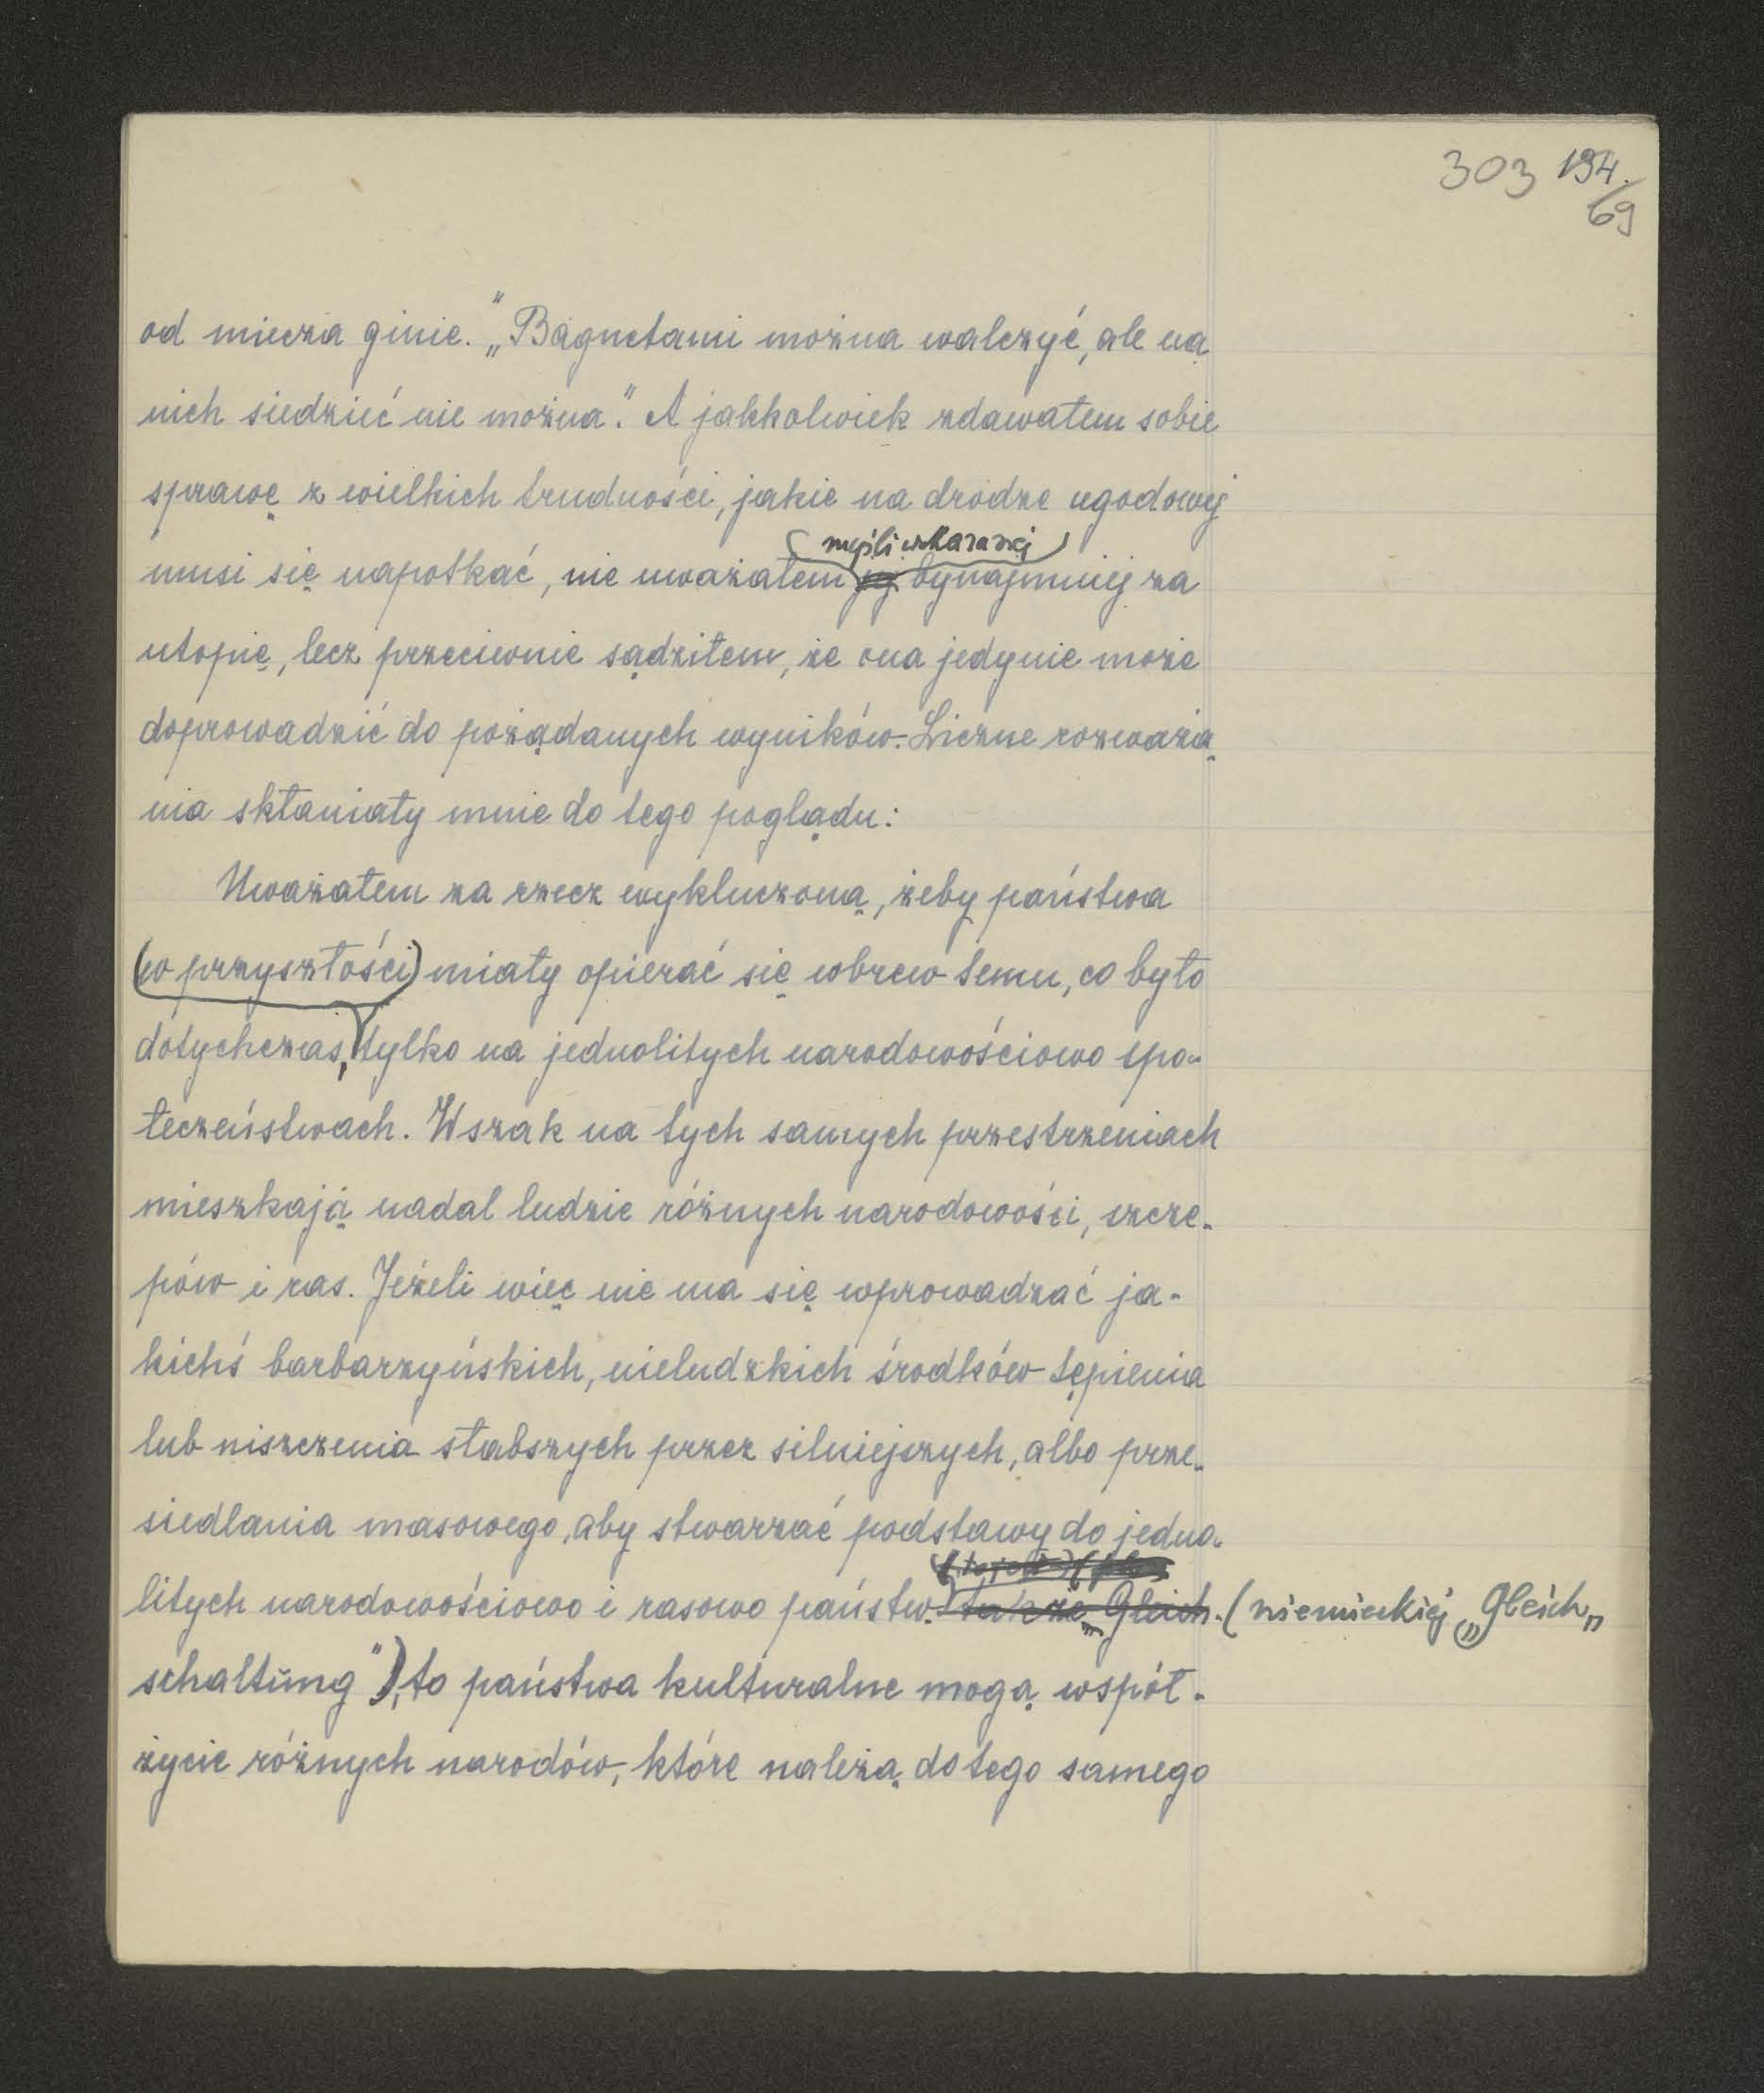 303 194.
/69
od miecza ginie.” „Bagnetami można walczyć, ale na
nich siedzieć nie można”. A jakkolwiek zdawałem sobie
sprawę z wielkich trudności, jakie na drodze ugodowej
(myśli wskazanej)
musi się napotkać, nie uważałem jej bynajmniej za
utopię, lecz przeciwnie sądziłem, że ona jedynie może
doprowadzić do pożądanych wyników. Liczne rozważa„
nia skłaniały mnie do tego poglądu:
Uważałem za rzecz wykluczoną, żeby państwa
(w przyszłości) miały opierać się wbrew temu, co było
dotychczas, tylko na jednolitych narodowościowo spo„
łeczeństwach. Wszak na tych samych przestrzeniach
mieszkają nadal ludzie różnych narodowości, szcze„
pów i ras. Jeżeli więc nie ma się wprowadzać ja-
kichś barbarzyńskich, nieludzkich środków tępienia
lub niszczenia słabszych przez silniejszych, albo prze„
siedlania masowego, aby stwarzać podstawy do jedno„
litych narodowościowo i rasowo państw. także „Gleich. (niemieckiej „Gleich„
schaltŭng”), to państwa kulturalne mogą współ-
życie różnych narodów, które należą do tego samego